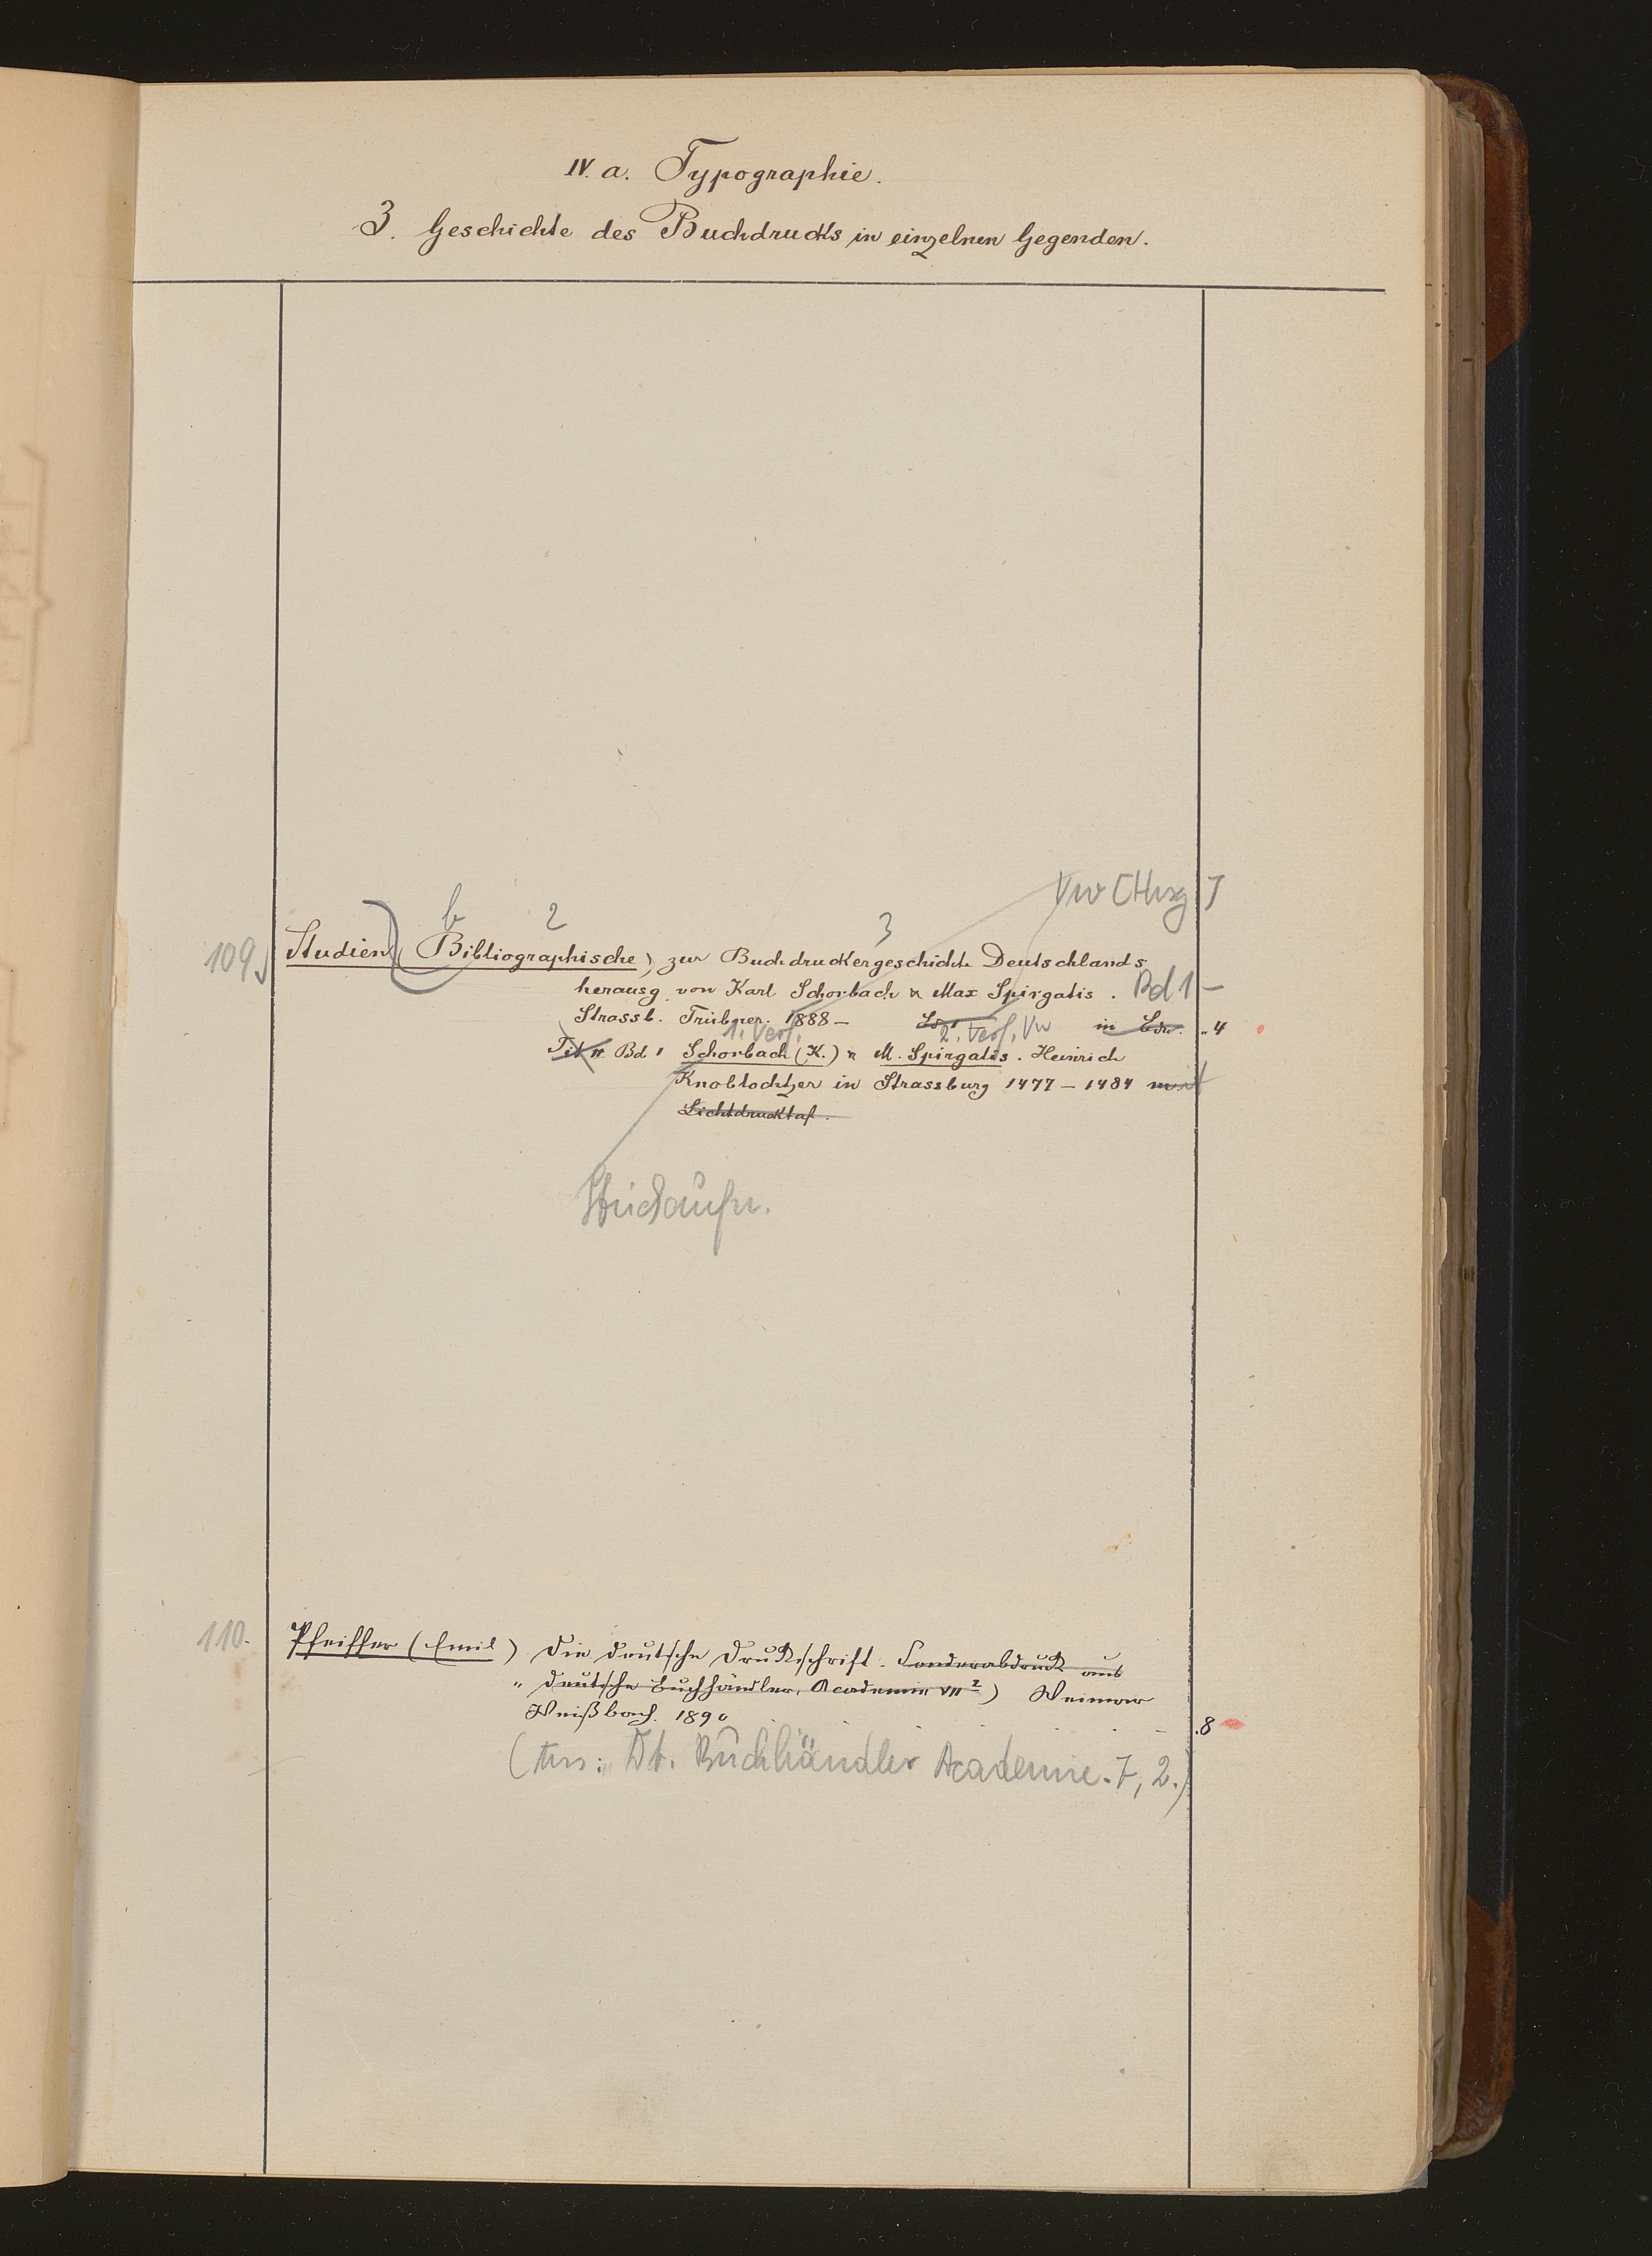 IV. a. Typographie.
3. Geschichte des Buchdrucks in einzelnen Gegenden.
Vw [Hrsg]
b 2 3
109. Studien (Bibliographische) zur Buchdruckergeschichte Deutschlands
herausg. von Karl Schorbach u Max Spirgatis. Bd 1 –
Strassb. Trübner. 1888 – in .. 4
1. Verf. 2. Verf. Vw
Bd. 1 Schorbach (K.) u M. Spirgatis. Heinrich
Knoblochtzer in Strassburg 1477 – 1484 mit
Lichtdrucktaf.
Stückaufn.
110. Pfeiffer (Emil) Die deutsche Druckschrift. Sonderabdruck aus
„ deutsche Buchhändler. Academie VII 2) Weimar
Weißbach. 1890 . 8
(Aus: Dt. Buchhändler Academie. 7, 2.)